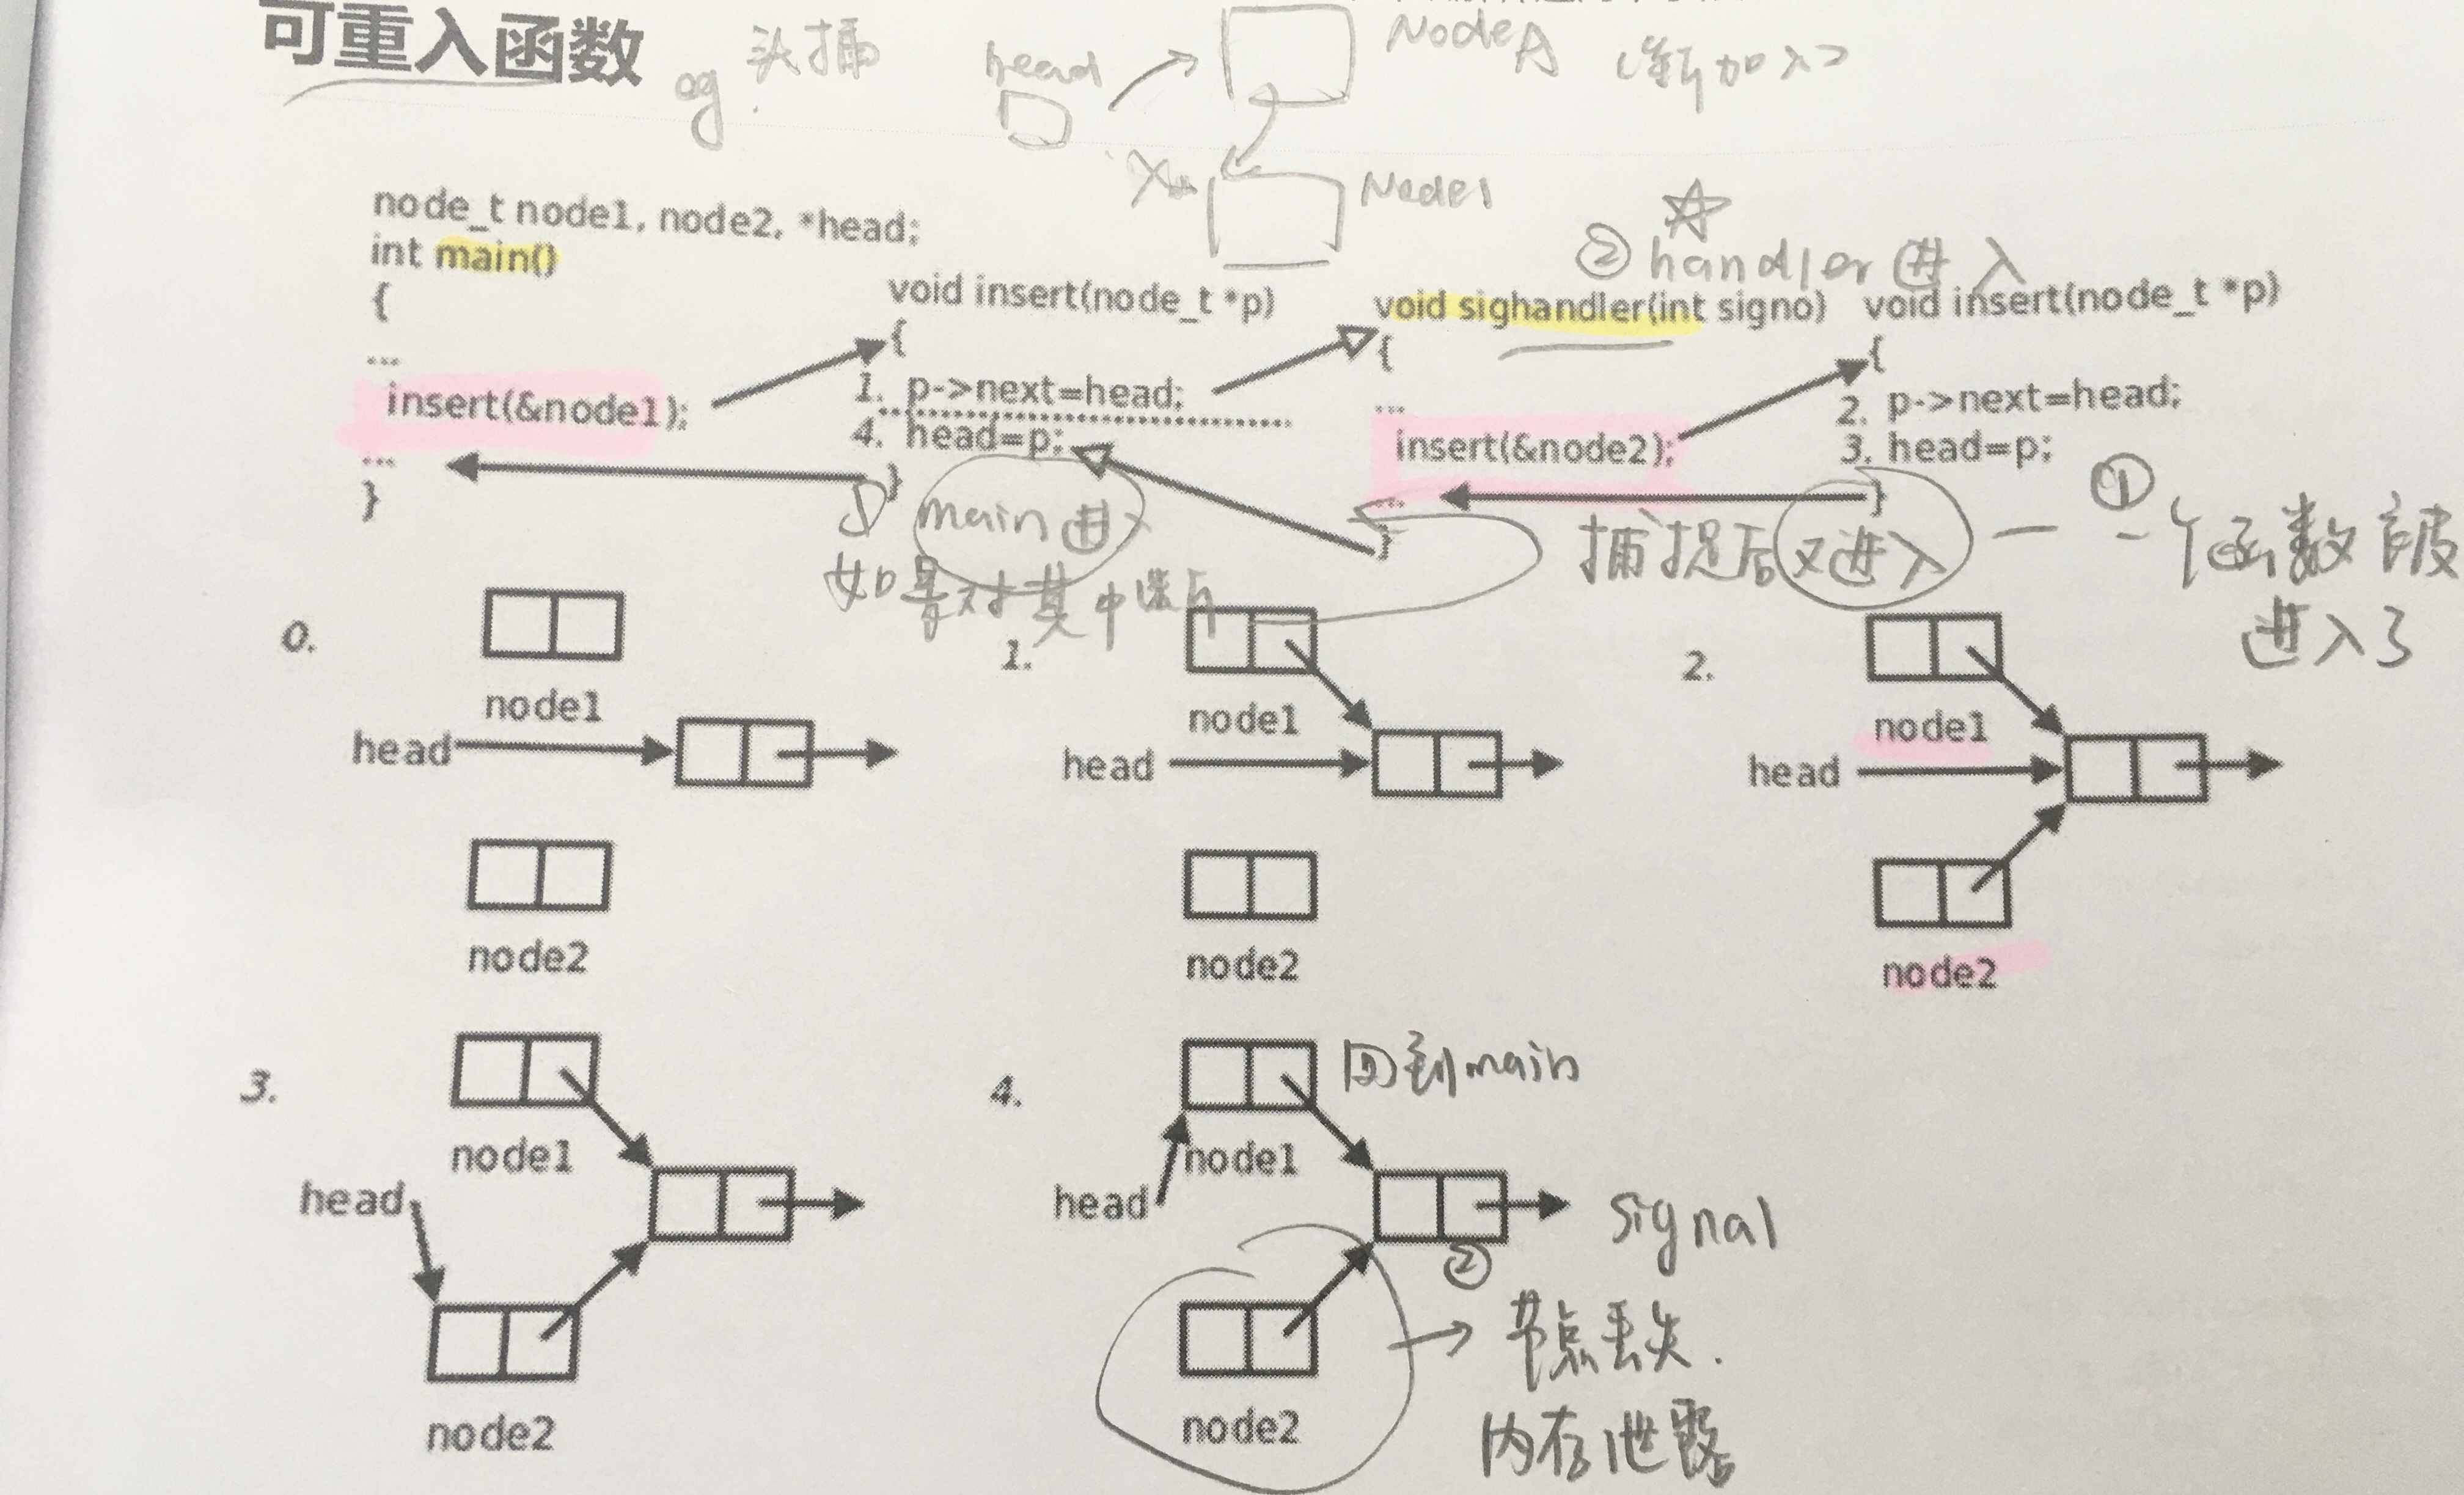 可重入函数
eg 头插
head
NodeA (新加入)
Node1
node_t node1, node2, *head;
int main()
{
...
insert(&node1);
...
}
void insert(node_t *p)
{
1. p->next=head;
4. head=p;
}
① main进入
② handler进入
void sighandler(int signo)
{
...
insert(&node2);
...
}
void insert(node_t *p)
{
2. p->next=head;
3. head=p;
}
捕捉后又进入 — ① 一个函数被
进入了
0.
node1
head
node2
1.
node1
head
node2
2.
node1
head
node2
3.
node1
head
node2
4.
回到main
node1
head
signal
②
节点丢失.
内存泄露
node2